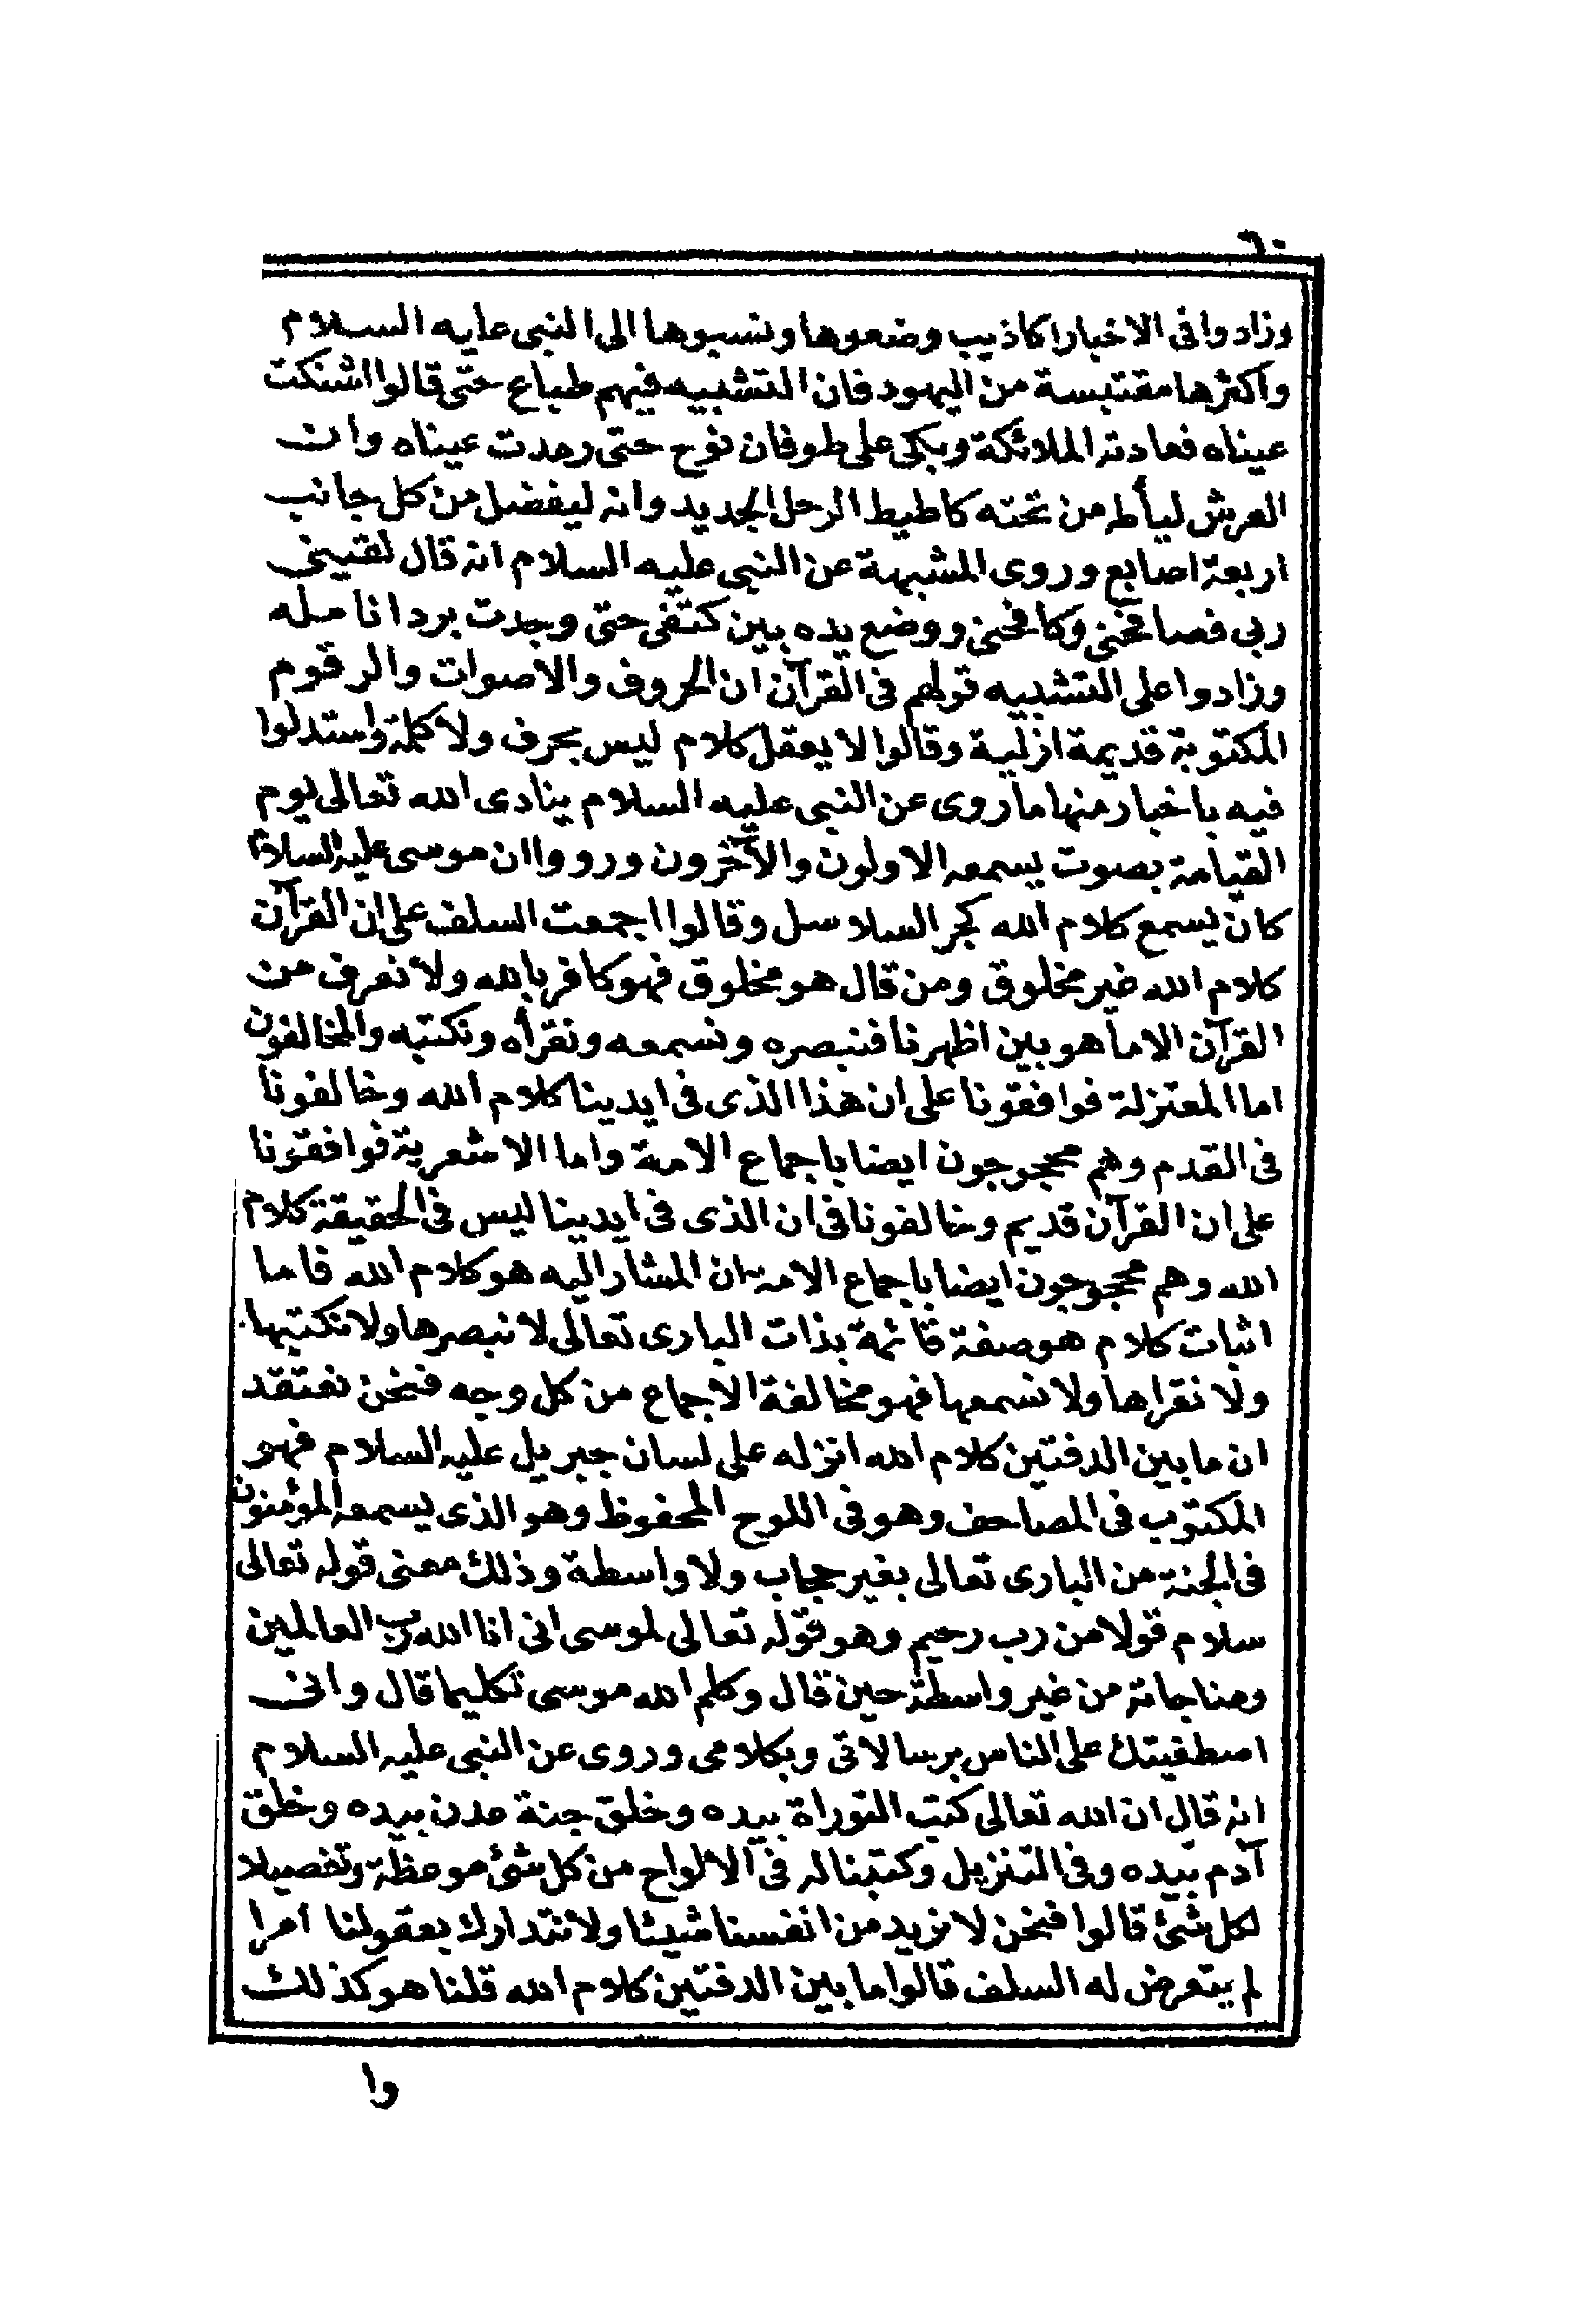 ٦٠
وزادوا فى الاخبار اكاذيب وضعوها ونسبوها الى النبى عليه السلام
واكثرها مقتبسة من اليهود فان التشبيه فيهم طباع حتى قالوا اشتكت
عيناه فعادته الملائكة وبكى على طوفان نوح حتى رمدت عيناه وان
العرش ليأط من تحته كاطيط الرحل الجديد وانه ليفضل من كل جانب
اربعة اصابع وروى المشبهة عن النبى عليه السلام انه قال لقينى
ربى فصافحنى وكافحنى ووضع يده بين كتفى حتى وجدت برد انامله
وزادوا على التشبيه قولهم فى القرآن ان الحروف والاصوات والرقوم
المكتوبة قديمة ازلية وقالوا لا يعقل كلام ليس بحرف ولا كلمة واستدلوا
فيه باخبار منها ما روى عن النبى عليه السلام ينادى الله تعالى يوم
القيامة بصوت يسمعه الاولون والآخرون ورووا ان موسى عليه السلام
كان يسمع كلام الله كجر السلاسل وقالوا اجمعت السلف على ان القرآن
كلام الله غير مخلوق ومن قال هو مخلوق فهو كافر بالله ولا نعرف من
القرآن الا ما هو بين اظهرنا فنبصره ونسمعه ونقرأه ونكتبه والمخالفون
اما المعتزلة فوافقونا على ان هذا الذى فى ايدينا كلام الله وخالفونا
فى القدم وهم محجوجون ايضا باجماع الامة واما الاشعرية فوافقونا
على ان القرآن قديم وخالفونا فى ان الذى فى ايدينا ليس فى الحقيقة كلام
الله وهم محجوجون ايضا باجماع الامة ان المشار اليه هو كلام الله فاما
اثبات كلام هو صفة قائمة بذات البارى تعالى لا نبصرها ولا نكتبها
ولا نقراها ولا نسمعها فهو مخالفة الاجماع من كل وجه فنحن نعتقد
ان ما بين الدفتين كلام الله انزله على لسان جبريل عليه السلام فهو
المكتوب فى المصاحف وهو فى اللوح المحفوظ وهو الذى يسمعه المؤمنون
فى الجنة من البارى تعالى بغير حجاب ولا واسطة وذلك معنى قوله تعالى
سلام قولا من رب رحيم وهو قوله تعالى لموسى انى انا الله رب العالمين
ومناجاته من غير واسطة حين قال وكلم الله موسى تكليما قال وانى
اصطفيتك على الناس برسالاتى وبكلامى وروى عن النبى عليه السلام
انه قال ان الله تعالى كتب التوراة بيده وخلق جنة عدن بيده وخلق
آدم بيده وفى التنزيل وكتبنا له فى الالواح من كل شئ موعظة وتفصيلا
لكل شئ قالوا فنحن لا نزيد من انفسنا شيئا ولا نتدارك بعقولنا امرا
لم يتعرض له السلف قالوا ما بين الدفتين كلام الله قلنا هو كذلك
وا